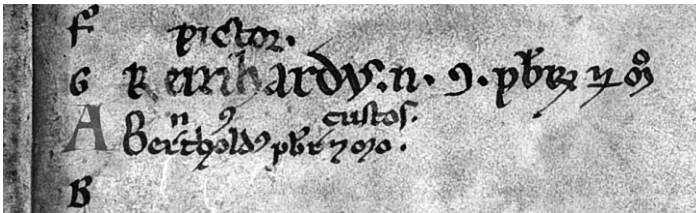 F pictor.
G Reinhardꝰ. n. ꝯ. pbr ⁊ mo
A n ꝯ custos.
Bertholdꝰ pbr ⁊ mo.
B